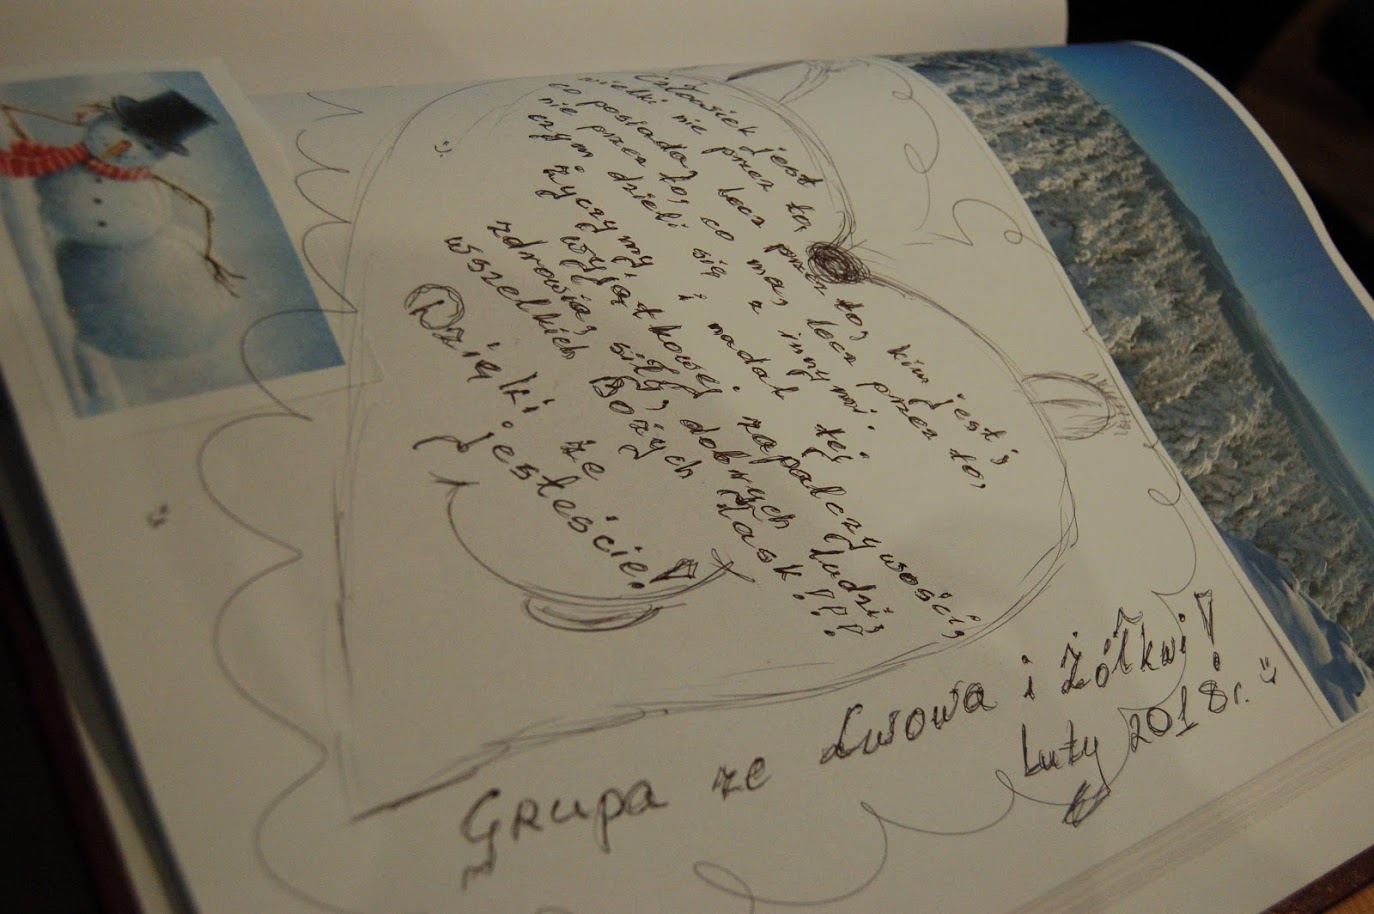 Człowiek jest
wielki nie przez to,
co posiada, lecz przez to, kim jest;
nie przez to, co ma, lecz przez to,
czym dzieli się z innymi.
Życzymy i nadal tej
wyjątkowej zapalczywości,
zdrowia, siły, dobrych ludzi,
wszelkich Bożych łask!!!
Dzięki że
jesteście!
Grupa ze Lwowa i Żółkwi!
Luty 2018r. :)